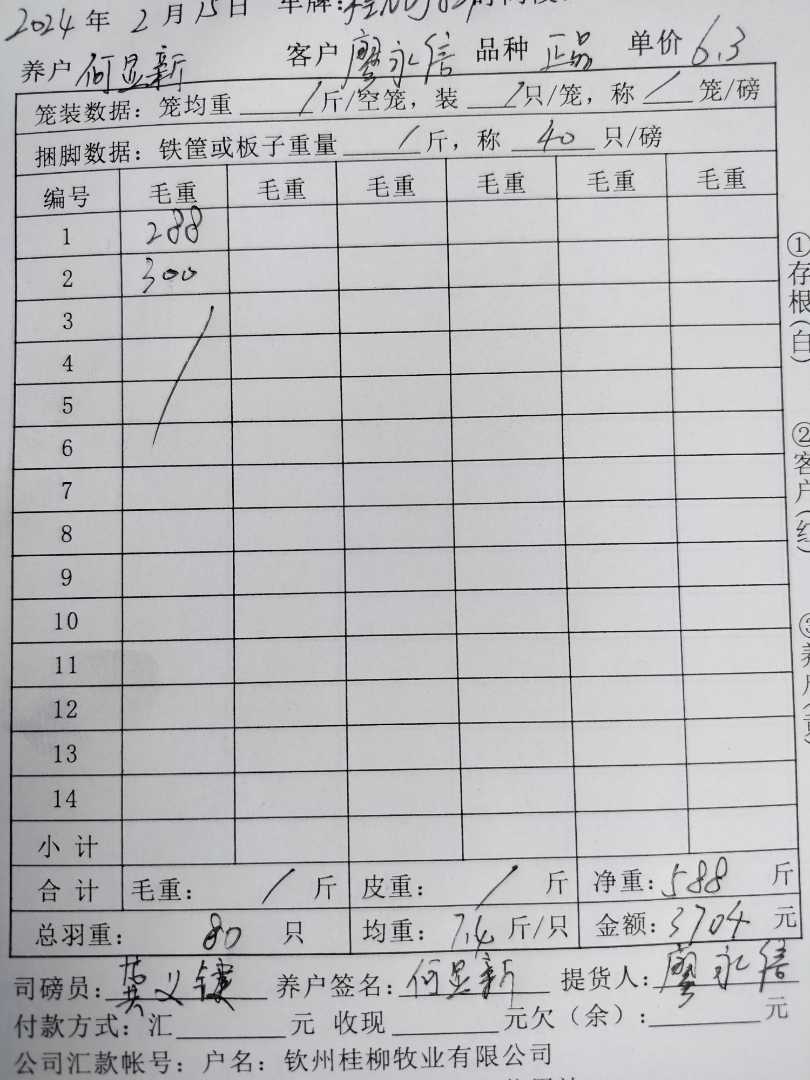 2024年 2月15日 车牌:
养户 何显新 客户 廖永信 品种 正品 单价 6.3
笼装数据：笼均重 / 斤/空笼，装 / 只/笼，称 / 笼/磅
捆脚数据：铁筐或板子重量 / 斤，称 40 只/磅
编号 毛重 毛重 毛重 毛重 毛重 毛重
1 288
2 300
3
4
5
6
7
8
9
10
11
12
13
14
小计
合计 毛重： / 斤 皮重： / 斤 净重：588 斤
总羽重： 80 只 均重：7.4 斤/只 金额：3704 元
司磅员： 养户签名：何显新 提货人：廖永信
付款方式：汇 元 收现 元欠（余）： 元
公司汇款帐号：户名：钦州桂柳牧业有限公司
①存根(白)
②客户(红)